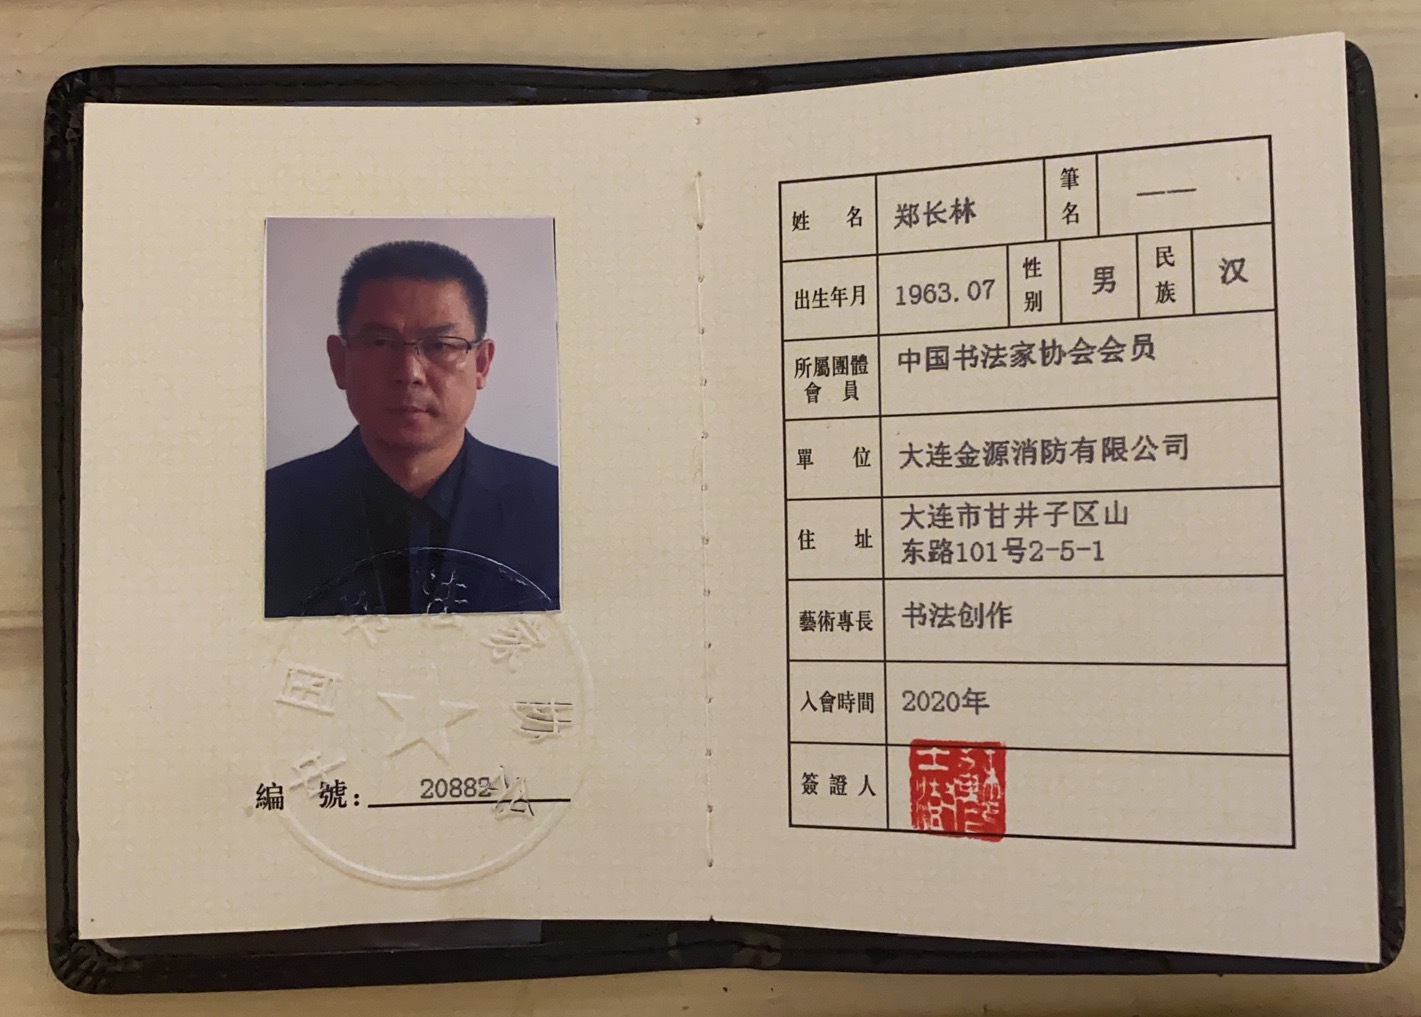 中国书法家协会
編 號: 20882
姓 名 郑长林 筆名 ——
出生年月 1963.07 性别 男 民族 汉
所屬團體會員 中国书法家协会会员
單 位 大连金源消防有限公司
住 址 大连市甘井子区山
东路101号2-5-1
藝術專長 书法创作
入會時間 2020年
簽證人